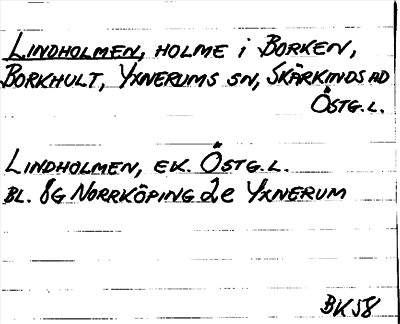 LINDHOLMEN, HOLME i BORKEN,
BORKHULT, YXNERUMS SN, SKÄRKINDS HD
ÖSTG.L.
LINDHOLMEN, EK. ÖSTG.L.
BL. 8G NORRKÖPING 2e YXNERUM
BK 58